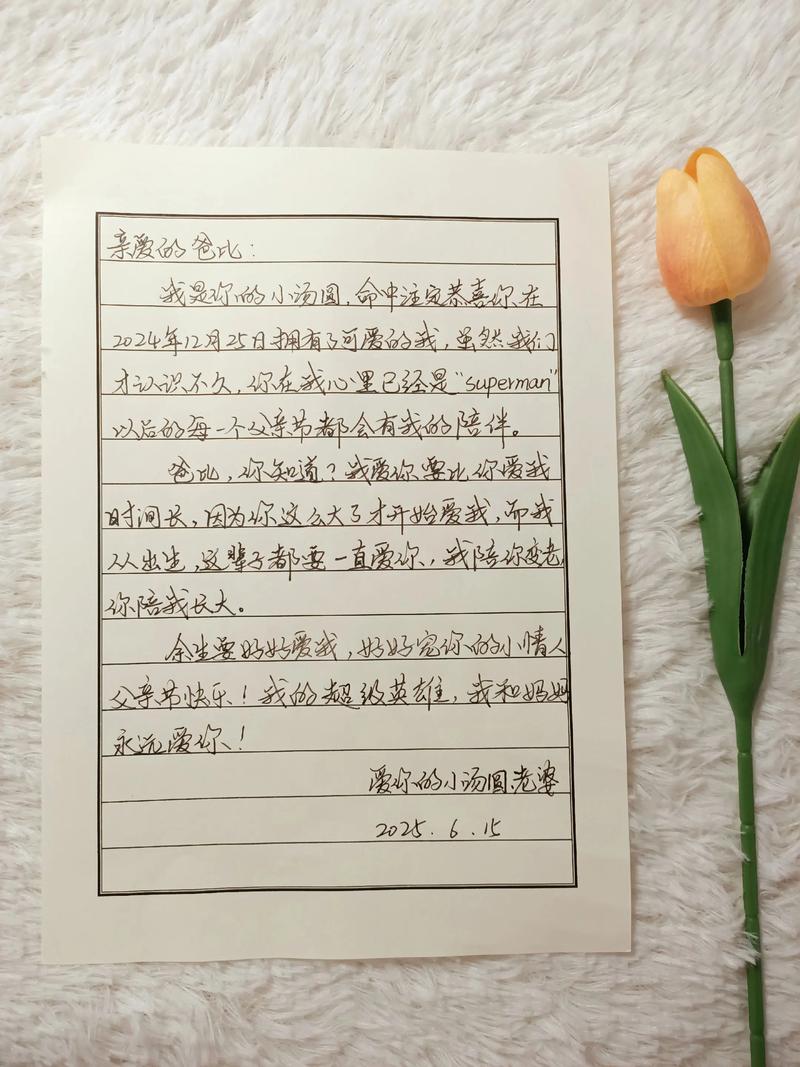 亲爱的爸比：
我是你的小汤圆，命中注定恭喜你在
2024年12月25日拥有了可爱的我，虽然我们
才认识不久，你在我心里已经是“superman”
以后的每一个父亲节都会有我的陪伴。
爸比，你知道？我爱你要比你爱我
时间长，因为你这么大了才开始爱我，而我
从出生，这辈子都要一直爱你，我陪你变老
你陪我长大。
余生要好好爱我，好好宠你的小情人
父亲节快乐！我的超级英雄，我和妈妈
永远爱你！
爱你的小汤圆、老婆
2025.6.15